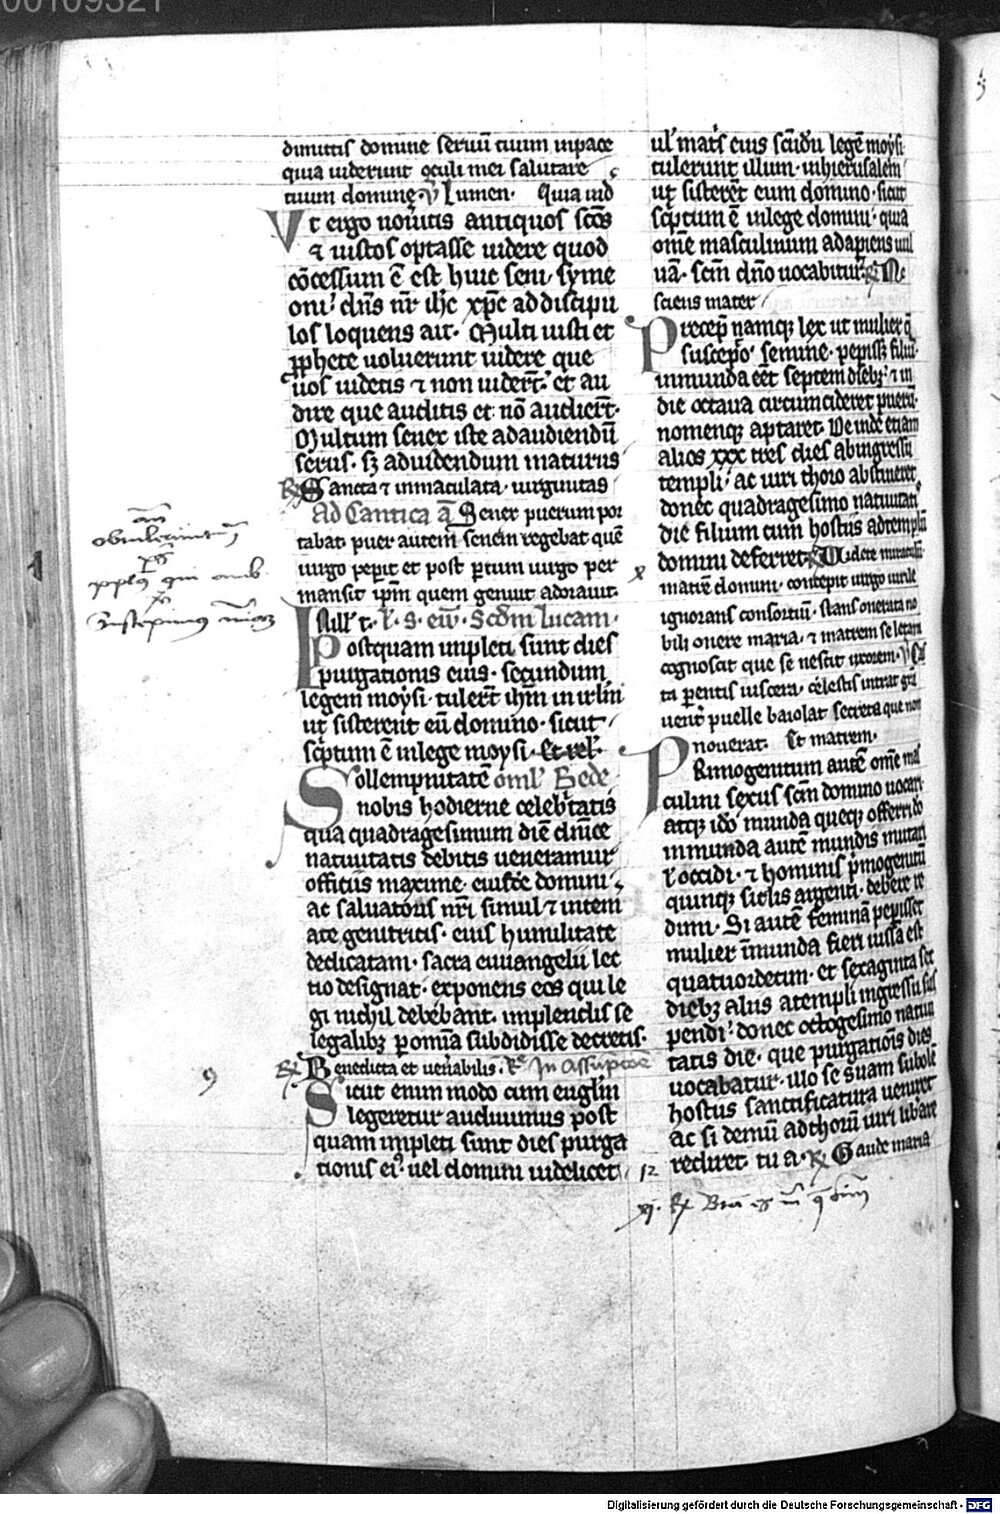 00109321
dimittis domine seruū tuum inpace
quia uiderunt oculi mei salutare
tuum domine. ℣ Lumen. Quia uid
Vt ergo nouitis antiquos scōs
⁊ iustos optasse uidere quod
cōcessum ē est huic seni symeoni
dn̄s nr̄ ih̄c xp̄c ad discipu
los loquens ait. Multi iusti et
ꝓphete uoluerunt uidere que
uos uidetis ⁊ non uider̄t. et au
dire que auditis et nō audier̄t.
Multum senex iste adaudiendū
serus. sꝫ aduidendum maturus
℟ Sancta ⁊ inmaculata uirginitas
Ad Cantica a᷈ Senex puerum por
tabat puer autem senem regebat quē
uirgo peperit et post partum uirgo per
mansit ip̄m quem genuit adorauit.
Scd̄m lucam.
Postquam impleti sunt dies
purgationis eius. secundum
legem moysi. tuler̄t ih̄m in irl̄m
ut sisterent eū domino. sicut
sc̄ptum ē inlege moysi. Et rel.
Sollempnitatē oml̄ Bede
nobis hodierne celeb̄tatis
qua quadragesimum diē dn̄ice
natiuitatis debitis ueneramur
officiis maxime eiusdē domini
ac saluatoris nr̄i simul ⁊ intem
ate genitricis. eius humilitate
dedicatam. sacra euuangelii lec
tio designat. exponens eos qui le
gi nichil debebant. implendis se
legalibꝫ ꝑ omīa subdidisse decretis.
℟ Benedicta et uen̄abilis. Rͤ In Assūptoē
Sicut enim modo cum euglīm
legeretur audiuimus post
quam impleti sunt dies purga
tionis eiꝰ. uel domini uidelicet
ul̓ matr̄s eius sc̄idū legē moysi
tulerunt illum inhierusalem
ut sisterēt eum domino. sicut
sc̄ptum ē inlege domini. quia
om̄e masculinum adapiens uul
uā. scm̄ dn̄o uocabitur. ℟ Ne
sciens mater
Precep̄ namqꝫ lex ut mulier q̄
suscepto semine. pep̄issꝫ filiū.
inmunda eēt septem diebꝫ ⁊ in
die octaua circumcideret puerū.
nomenqꝫ aptaret. De inde etiam
alios xxx tres dies abingressu
templi. ac uiri thoro abstineret
donec quadragesimo natiuitatis
die filium cum hostiis adtemplū
domini deferret. ℟ Uidete miraculū
matrē domini. concepit uirgo uirile
ignorans consortiū. stans onerata no
bili onere maria. ⁊ matrem se letam
cognoscit que se nescit uxorem. ℣ Cas
ta parentis uiscera. celestis intrat grā
uent̄ puelle baiolat secreta que non
nouerat. Et matrem.
PRimogenitum autē om̄e mas
culini sexus scm̄ domino uocari
atqꝫ ido munda queqꝫ offerri do
inmunda autē mundis mutari
ul̓ occidi. ⁊ hominis p̄mogenitū
quinqꝫ siclis argenti. debere re
dimi. Si autē feminā peperisset
mulier īmunda fieri iussa est
quatuordecim. et sexaginta sex
diebꝫ aliis atempli ingressu sus
pendi. donec octogesimo natiui
tatis die. que purgatiōis dies
uocabatur. illo se suam sobolē
hostiis sanctificatura ueniret
ac si demū adthorū uiri libere
rediret. tu a. ℟ Gaude maria
9
12
Digitalisierung gefördert durch die Deutsche Forschungsgemeinschaft - DFG